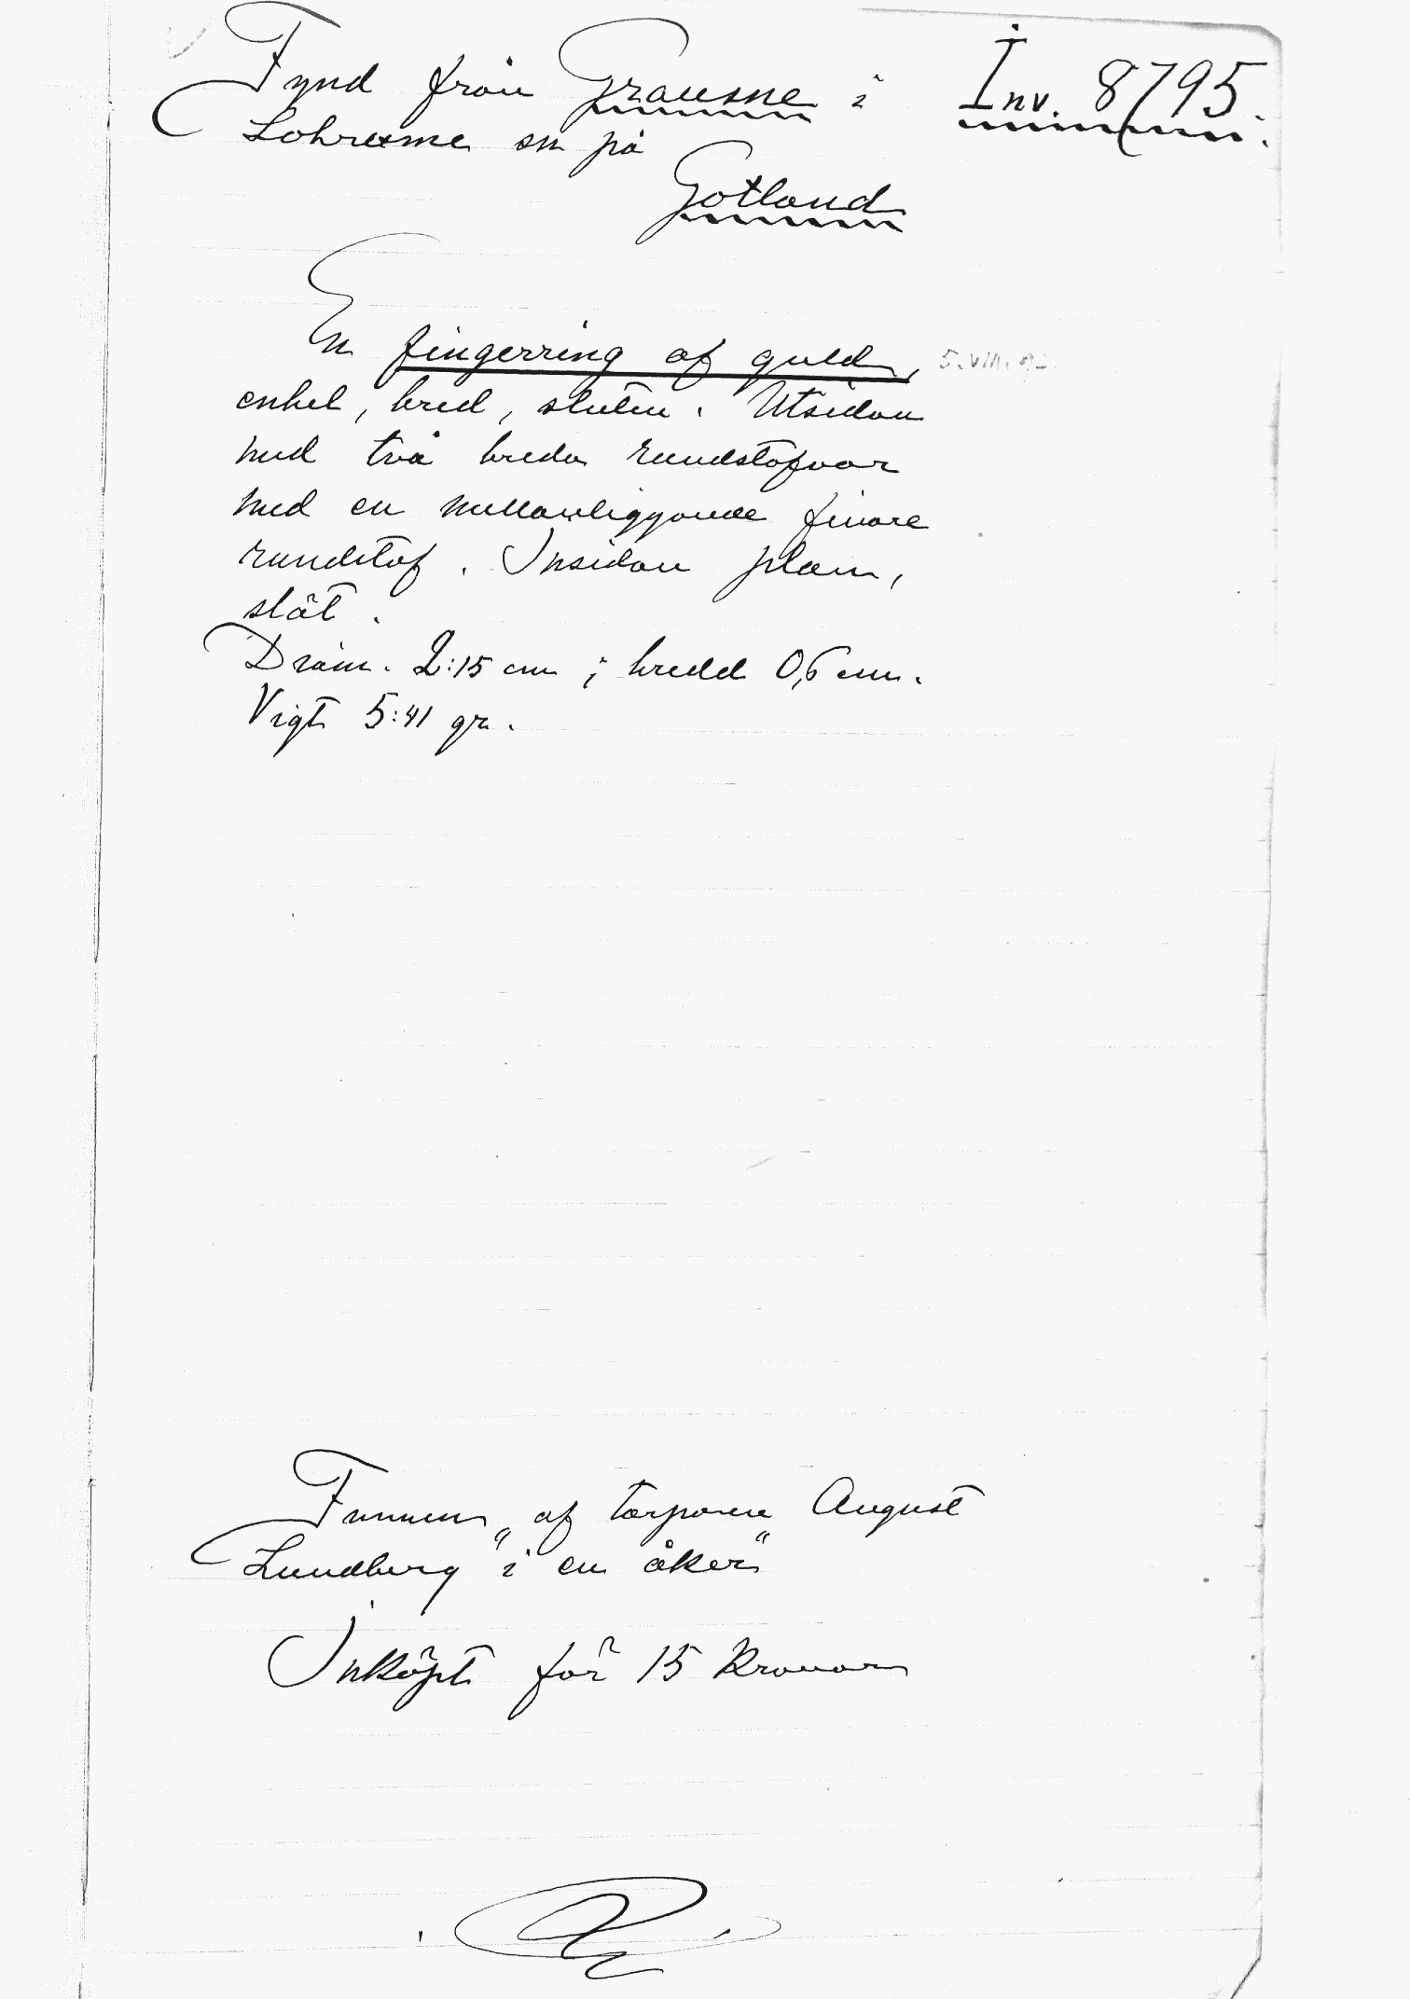 Fynd från Grausne i
Inv. 8795.
Lokrume sn på
Gotland
En fingerring af guld,
enkel, bred, sluten. Utsidan
med två breda rundstafvar
med en mellanliggande finare
rundstaf. Insidan plan,
slät.
Diam. 2:15 cm; bredd 0,6 cm.
Vigt 5:41 gr.
Funnen af torparen August
Lundberg "i en åker"
Inköpt för 15 Kronor